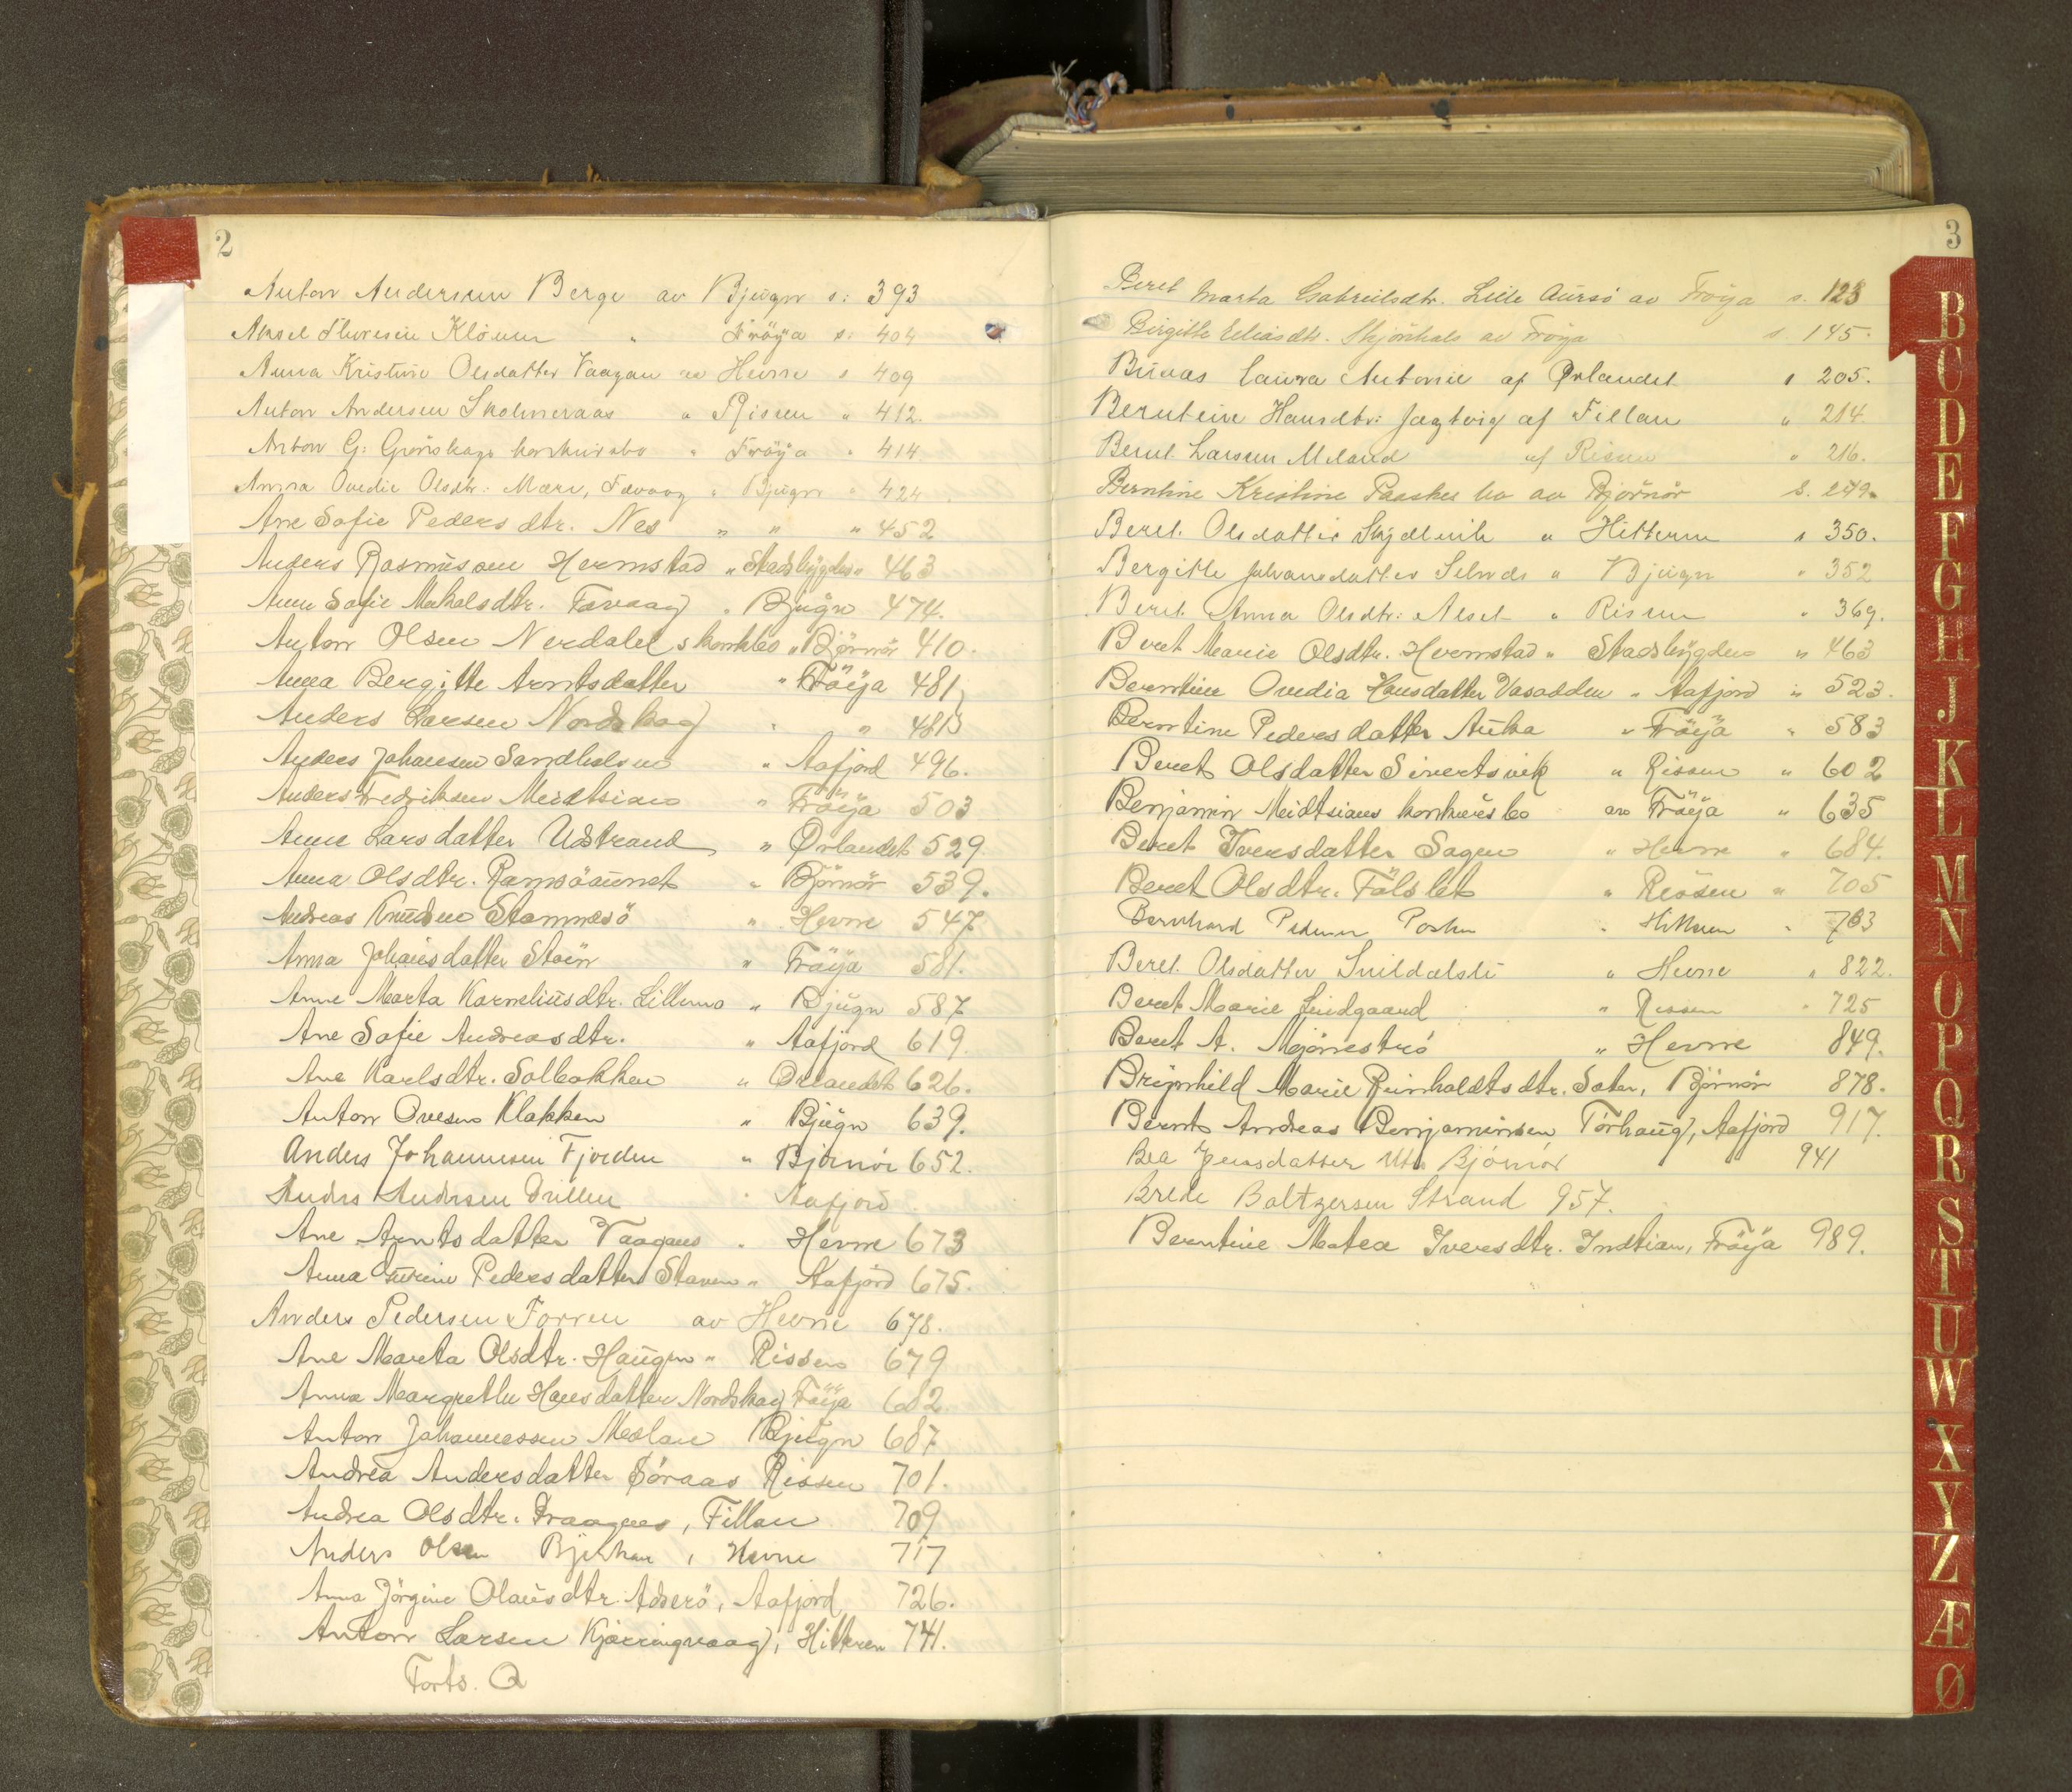 2
Anton Andersen Berge av Bjugn s: 393
Aksel Thoresen Klönen " Fröya s: 404
Anna Kristine Olsdatter Vaagan av Hevne s 409
Anton Andersen Skolmeraas " Rissen " 412.
Anton G: Grönskags konkursbo " Fröya " 414
Anna Ovedie Olsdtr: Mære, Fævaag " Bjugn " 424
Ane Sofie Pedersdtr. Nes " " " 452
Anders Rasmussen Hermstad " Stadsbygden " 463
Anne Sofie Mikalsdtr. Fævaag " Bjugn 474.
Anton Olsen Nerdalel s konkbo " Björnör 410.
Anna Bergitte Arntsdatter " Fröya 481
Anders Larsen Nordskag " " 481B
Anders Johansen Sandholm " Aafjord 496.
Anders Fredriksen Midtsian " Fröya 503
Anne Larsdatter Udstrand " Ørlandet 529.
Anna Olsdtr. Ramsöaunet " Björnör 539.
Andreas Knudsen Stamnesö " Hevne 547
Anna Johansdatter Stöen " Fröya 581.
Anne Marta Korneliusdtr. Lillemo " Bjugn 587
Ane Sofie Andreasdtr. " Aafjord 619.
Ane Karlsdtr. Solbakken " Ørlandet 626.
Anton Ovesen Klakken " Bjugn 639.
Anders Johannesen Fjorden " Björnör 652.
Anders Andersen " Aafjord
Ane Arntsdatter Vaagan " Hevne 673
Anna Pedersdatter Staven " Aafjord 675.
Anders Pedersen Forren av Hevne 678.
Ane Marta Olsdtr. Haugen " Rissen 679
Anna Margrethe Hansdatter Nordskag Fröya 682
Anton Johannessen Meslan Bjugn 687
Andrea Andersdatter Søraas Rissen 701.
Andrea Olsdtr. Kraagnes, Fillan 709
Anders Olsen Bjerkan, Hevne 717
Anna Jörgine Olausdtr. Adserö, Aafjord 726.
Anton Larsen Kjerringvaag, Hitteren 741.
Forts. Q
3
Beret Marta Gabrielsdtr. Lille Aursö av Fröya s. 123
Birgitte Eliasdtr. Skjönhals av Fröya s 145.
Buaas Laura Antonie af Ørlandet s 205.
Berntine Hansdtr: Jagtvig af Fillan " 214.
Bernt Larsen Meland af Risen " 216.
Berntine Kristine Paaskes bo av Björnör s. 249.
Beret Olsdatter Skydlvik " Hitteren s 350.
Bergitte Johansdatter Selnes " Bjugn " 352
Beret Anna Olsdtr: Alset " Rissen " 369.
Beret Marie Olsdtr. Hermstad " Stadsbygden " 463
Berntine Ovedia Hansdatter Vasodden " Aafjord " 523.
Berntine Pedersdatter Auka " Fröya " 583
Beret Olsdatter Sivertsvik " Rissen " 602
Benjamin Midtsians konkursbo av Fröya " 635
Beret Iversdatter Sagen " Hevne " 684.
Beret Olsdtr. Fölslet " Rissen " 705
Bernhard Pedersen " Hitteren " 763
Beret Olsdatter Snildalsli " Hevne " 822.
Beret Marie Lindgaard " Rissen " 725
Beret A. Mjöneströ " Hevne 849.
Brynhild Marie Reinholdtsdtr. Sæter, Björnör 878.
Bernt Andreas Benjaminsen Törhaug, Aafjord 917.
Bea Jensdatter Björnör 941
Brede Baltzersen Strand 957.
Berntine Matea Iversdtr. Indtian, Fröya 989.
B
C
D
E
F
G
H
J
K
L
M
N
O
P
Q
R
S
T
U
W
X
Y
Z
Æ
Ø